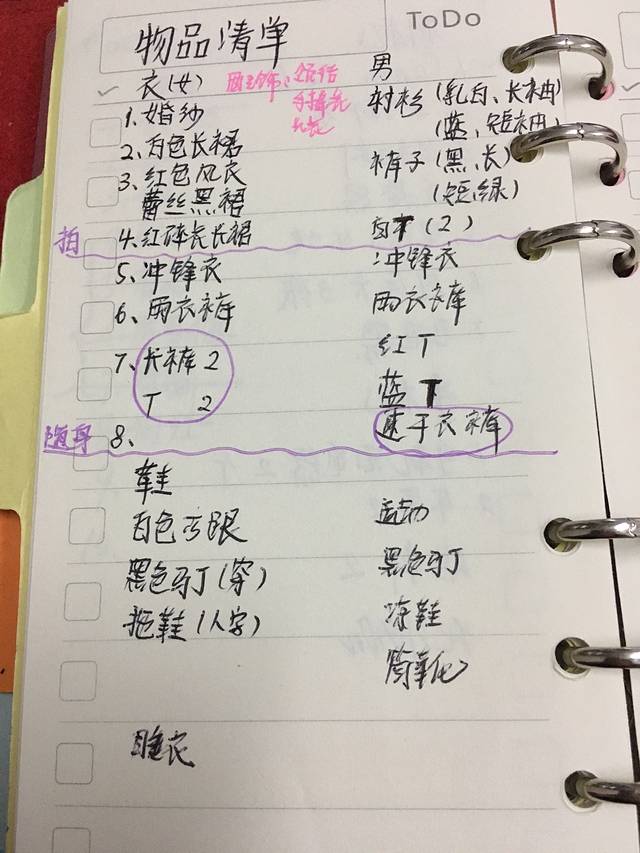 ToDo
物品清单
衣(女)
男
头饰、领结
手捧花
1.婚纱
衬衫(乳白、长袖)
(蓝、短袖)
2.白色长裙
裤子(黑、长)
(短绿)
3.红色风衣
蕾丝黑裙
拍
4.红碎长长裙
白T(2)
5、冲锋衣
冲锋衣
6、雨衣裤
雨衣裤
红T
7、长裤2
T 2
蓝T
速干衣裤
随身
8、
鞋
白色亏跟
运动
黑色马丁(穿)
黑色马丁
拖鞋(人字)
凉鞋
睡衣